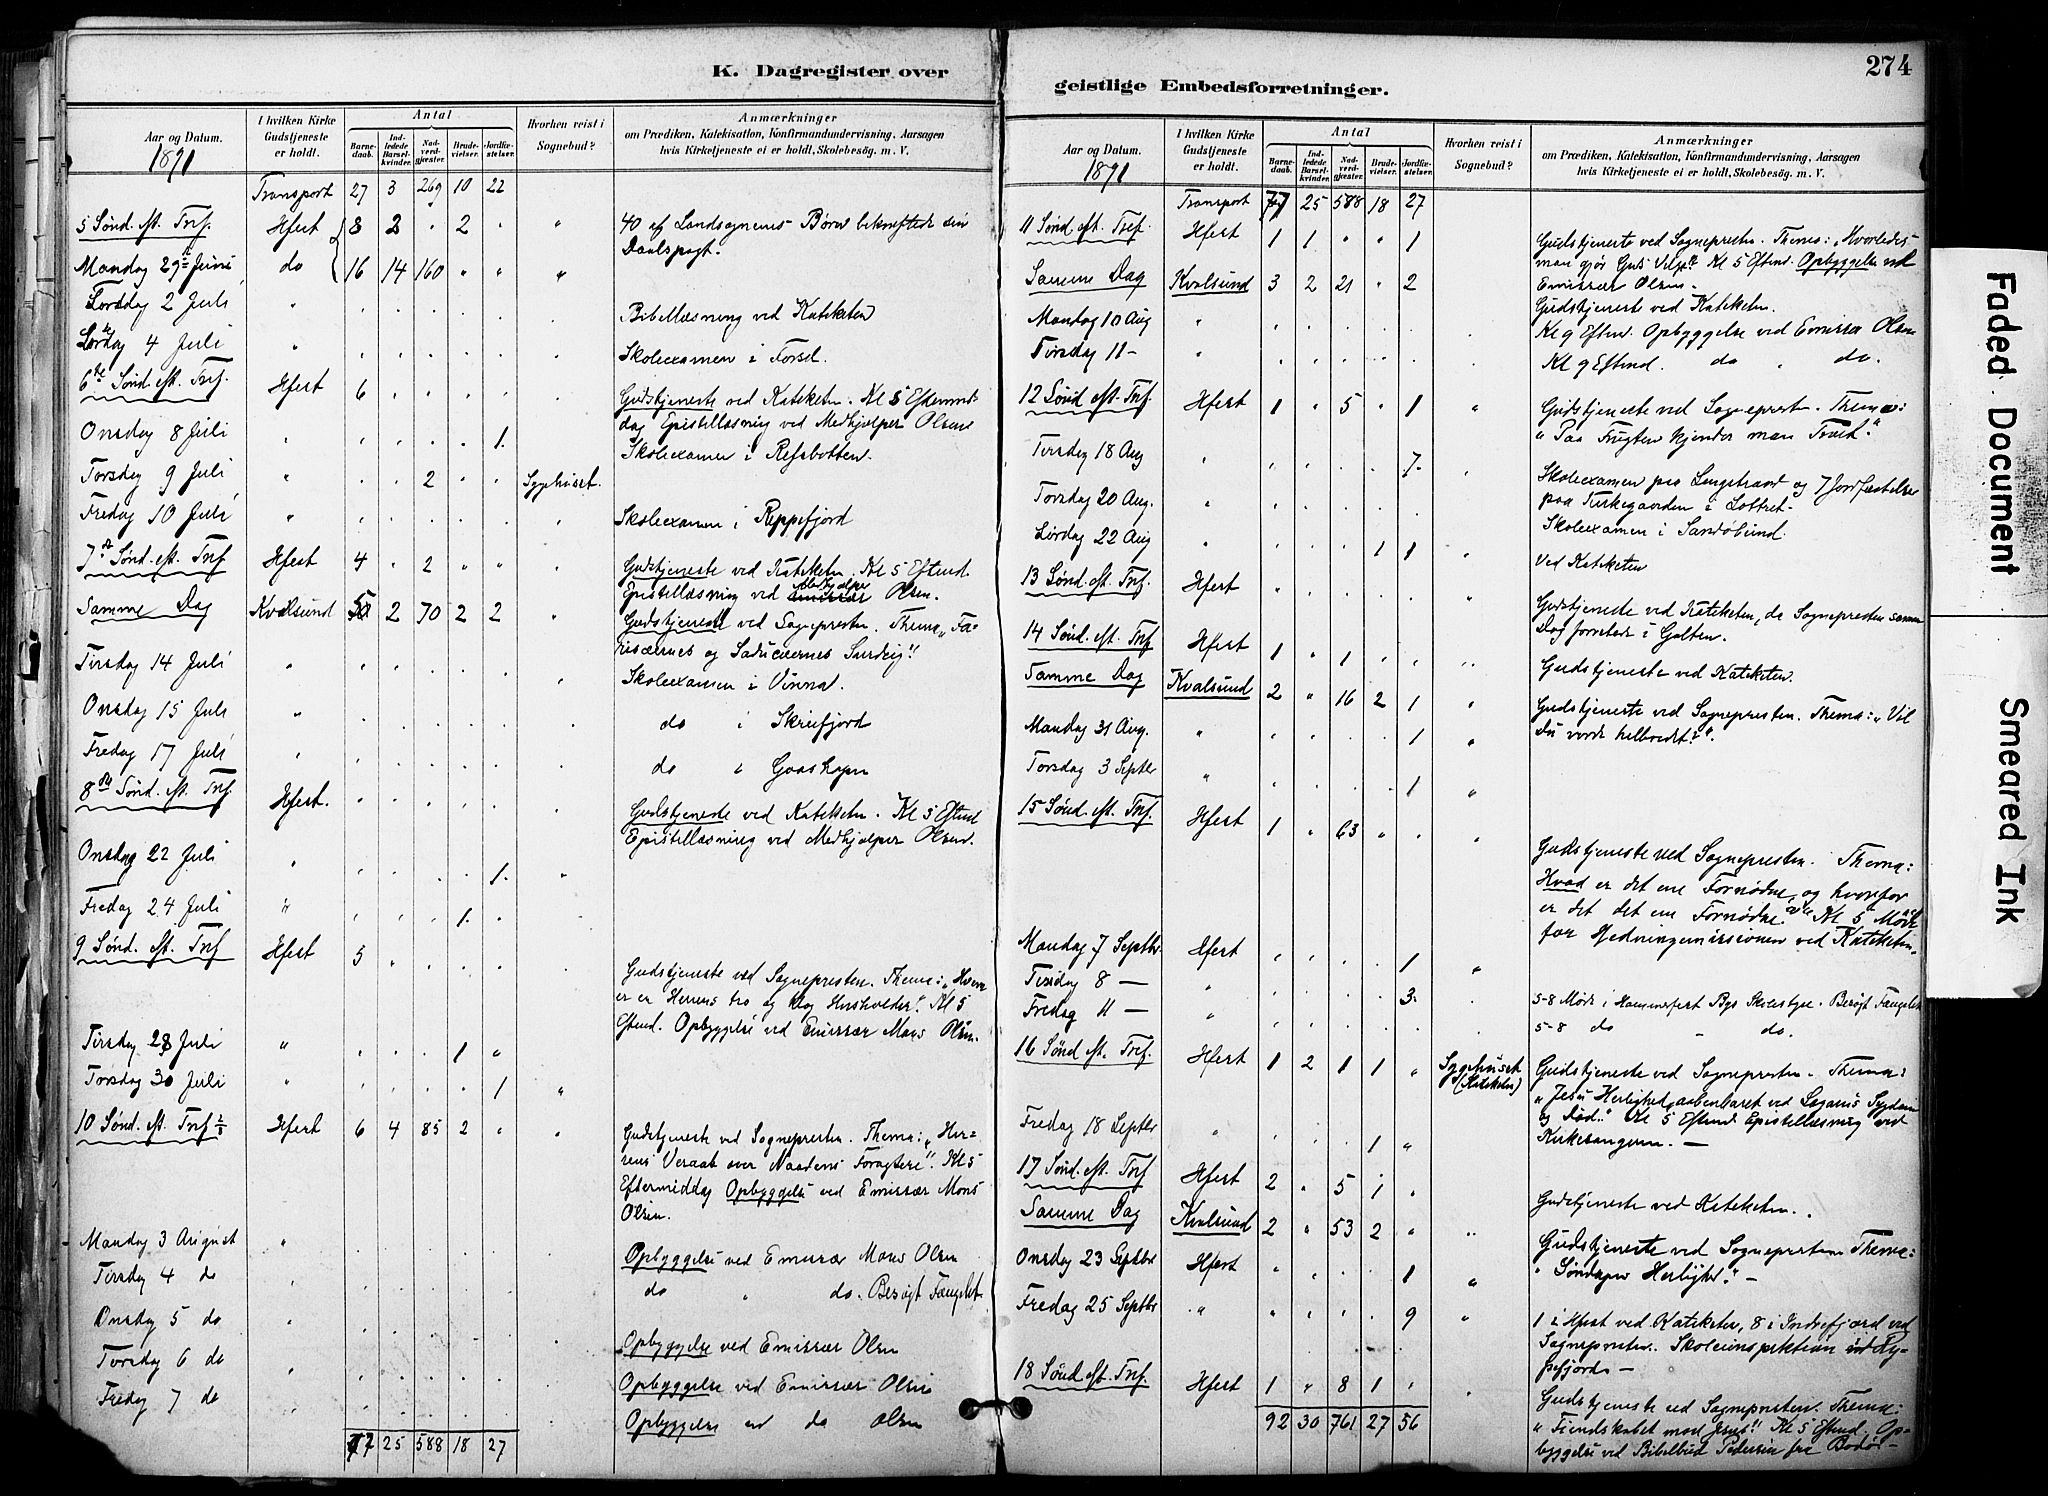 K. Dagregister over
Aar og Datum. 1891
I hvilken Kirke Gudstjeneste er holdt.
Antal
Barnedaab. Indledede Barselkvinder. Nadverdgjester. Brudevielser. Jordfæstelser.
Hvorhen reist i Sognebud?
Anmærkninger
om Prædiken, Katekisation, Konfirmandundervisning, Aarsagen
hvis Kirketjeneste ei er holdt, Skolebesøg. m. V.
Transport 27 3 269 10 22
5 Sønd. eft. Tref. Hfest 8 2 " 2 " " 40 af Landsognenes Børn bekræftede sin
Daabspagt.
Mandag 29de Juni do 16 14 160 " " "
Torsdag 2 Juli " Bibellæsning ved Kateketen
Lørdag 4 Juli " Skoleexamen i Forsøl.
6te Sønd. eft. Tref. Hfest 6 Gudstjeneste ved Kateketen. Kl 5 Eftermid-
dag Epistellæsning ved Medhjælper Olsen
Onsdag 8 Juli " 1. Skoleexamen i Refsbotten.
Torsdag 9 Juli " 2 Sygehuset.
Fredag 10 Juli " Skoleexamen i Reppefjord
7de Sønd. eft. Tref Hfest 4 " 2 " " Gudstjeneste ved Kateketen. Kl 5 Eftmd.
Epistellæsning ved Medhjælper Olsen.
Samme Dag Kvalsund 5 2 70 2 2 " Gudstjeneste ved Sognepresten. Thema „Fa-
risæernes og Saducæernes Surdeig".
Tirsdag 14 Juli " Skoleexamen i Vinna.
Onsdag 15 Juli " do i Skreifjord
Fredag 17 Juli " do i Gaashopen
8de Sønd. eft. Tref Hfest. Gudstjeneste ved Kateketen. Kl 5 Eftmd
Epistellæsning ved Medhjælper Olsen.
Onsdag 22 Juli " 1. "
Fredag 24 Juli " 1.
9 Sønd. eft. Tref Hfest 5 Gudstjeneste ved Sognepresten. Thema: „Hvem
er er Herrens tro og klog Husholder". Kl 5
Eftmd. Opbyggelse ved Emissær Mons Olsen.
Tirsdag 28 Juli " 1 "
Torsdag 30 Juli " 1 "
10 Sønd. eft. Tref Hfest 6 4 85 2 " " Gudstjeneste ved Sognepresten. Thema: „Her-
rens Veraab over Naadens Foragtere". Kl 5
Eftermiddag Opbyggelse ved Emissær Mons
Olsen.
Mandag 3 August " Opbyggelse ved Emissær Mons Olsen
Tirsdag 4 do do " do. Besøgt Fængslet
Onsdag 5 do " Opbyggelse ved Emissær Olsen
Torsdag 6 do " Opbyggelse ved Emissær Olsen
Fredag 7 do Opbyggelse ved do Olsen
77 25 588 18 27
geistlige Embedsforretninger.
274
Aar og Datum. 1891
I hvilken Kirke Gudstjeneste er holdt.
Antal
Barnedaab. Indledede Barselkvinder. Nadverdgjester. Brudevielser. Jordfæstelser.
Hvorhen reist i Sognebud?
Anmærkninger
om Prædiken, Katekisation, Konfirmandundervisning, Aarsagen
hvis Kirketjeneste ei er holdt, Skolebesøg. m. V.
Transport 77 25 588 18 27
11 Sønd. eft. Tref. Hfest 1 1 " " 1 Gudstjeneste ved Sognepresten. Thema: „Hvorledes
man gjør Guds Vilje". Kl 5 Eftmd. Opbyggelse ved
Emissær Olsen.
Samme Dag Kvalsund 3 2 21 " 2 Gudstjeneste ved Kateketen.
Mandag 10 Aug " Kl 9 Eftmd. Opbyggelse ved Emissær Olsen
Tirsdag 11 – " Kl 9 Eftmd. do " do.
12 Sønd eft. Tref. Hfest 1 " 5 " 1 " Gudstjeneste ved Sognepresten. Thema:
„Paa Frugten kjender man Træet."
Tirsdag 18 Aug " 7. Skoleexamen paa Langstrand og 7 Jordfæstelser
paa Kirkegaarden i Lottret-
Torsdag 20 Aug. " Skoleexamen i Sandøbund.
Lørdag 22 Aug " 1 1 " Ved Kateketen
13 Sønd. eft. Tref. Hfest " Gudstjeneste ved Kateketen, da Sognepresten samme
Dag forrettede i Galten.
14 Sønd. eft. Tref Hfest 1 " 1 " Gudstjeneste ved Kateketen.
Samme Dag Kvalsund 2 " 16 2 1 " Gudstjeneste ved Sognepresten. Thema: „Vil
du vorde helbredet?".
Mandag 31 Aug. " 1 "
Torsdag 3 Septbr " 1 "
15 Sønd. eft. Tref. Hfest 1 " 63 " Gudstjeneste ved Sognepresten. Thema:
Hvad er det ene Fornødne, og hvorfor
er det det ene Fornødne? Kl 5 Møde
for Hedningemissionen ved Kateketen.
Mandag 7 Septbr Hfest 1 "
Tirsdag 8 – " 3. 5-8 Møde i Hammerfest Bys Skolestyre. Besøgt Fængslet
Fredag 11 – " 5-8 do – do.
16 Sønd eft. Tref. Hfest 1 2 1 1 " Sygehuset (Kateketen) Gudstjeneste ved Sognepresten. Thema:
„Jesu Herlighed, aabenbaret ved Lazarus Sygdom
og Død." Kl 5 Eftmd Epistellæsning ved
Kirkesangeren. –
Fredag 18 Septbr " 1 "
17 Sønd. eft. Tref Hfest 2 " 5 1 Gudstjeneste ved Kateketen.
Samme Dag Kvalsund 2 " 53 2 " " Gudstjeneste ved Sognepresten Thema:
„Søndagens Herlighed." –
Onsdag 23 Septbr Hfest 1 "
Fredag 25 Septbr " 9 " 1 i Hfest ved Kateketen, 8 i Indrefjord ved
Sognepresten. Skoleinspektion ved Ry-
pefjord. –
18 Sønd eft. Tref. Hfest 1 " 8 1 Gudstjeneste ved Sognepresten. Thema:
„Fiendskabet mod Jesus". Kl 5 Eftmd. Op-
byggelse ved Bibelbud Pedersen fra Bodø –
92 30 761 27 56
Faded Document
Smeared Ink